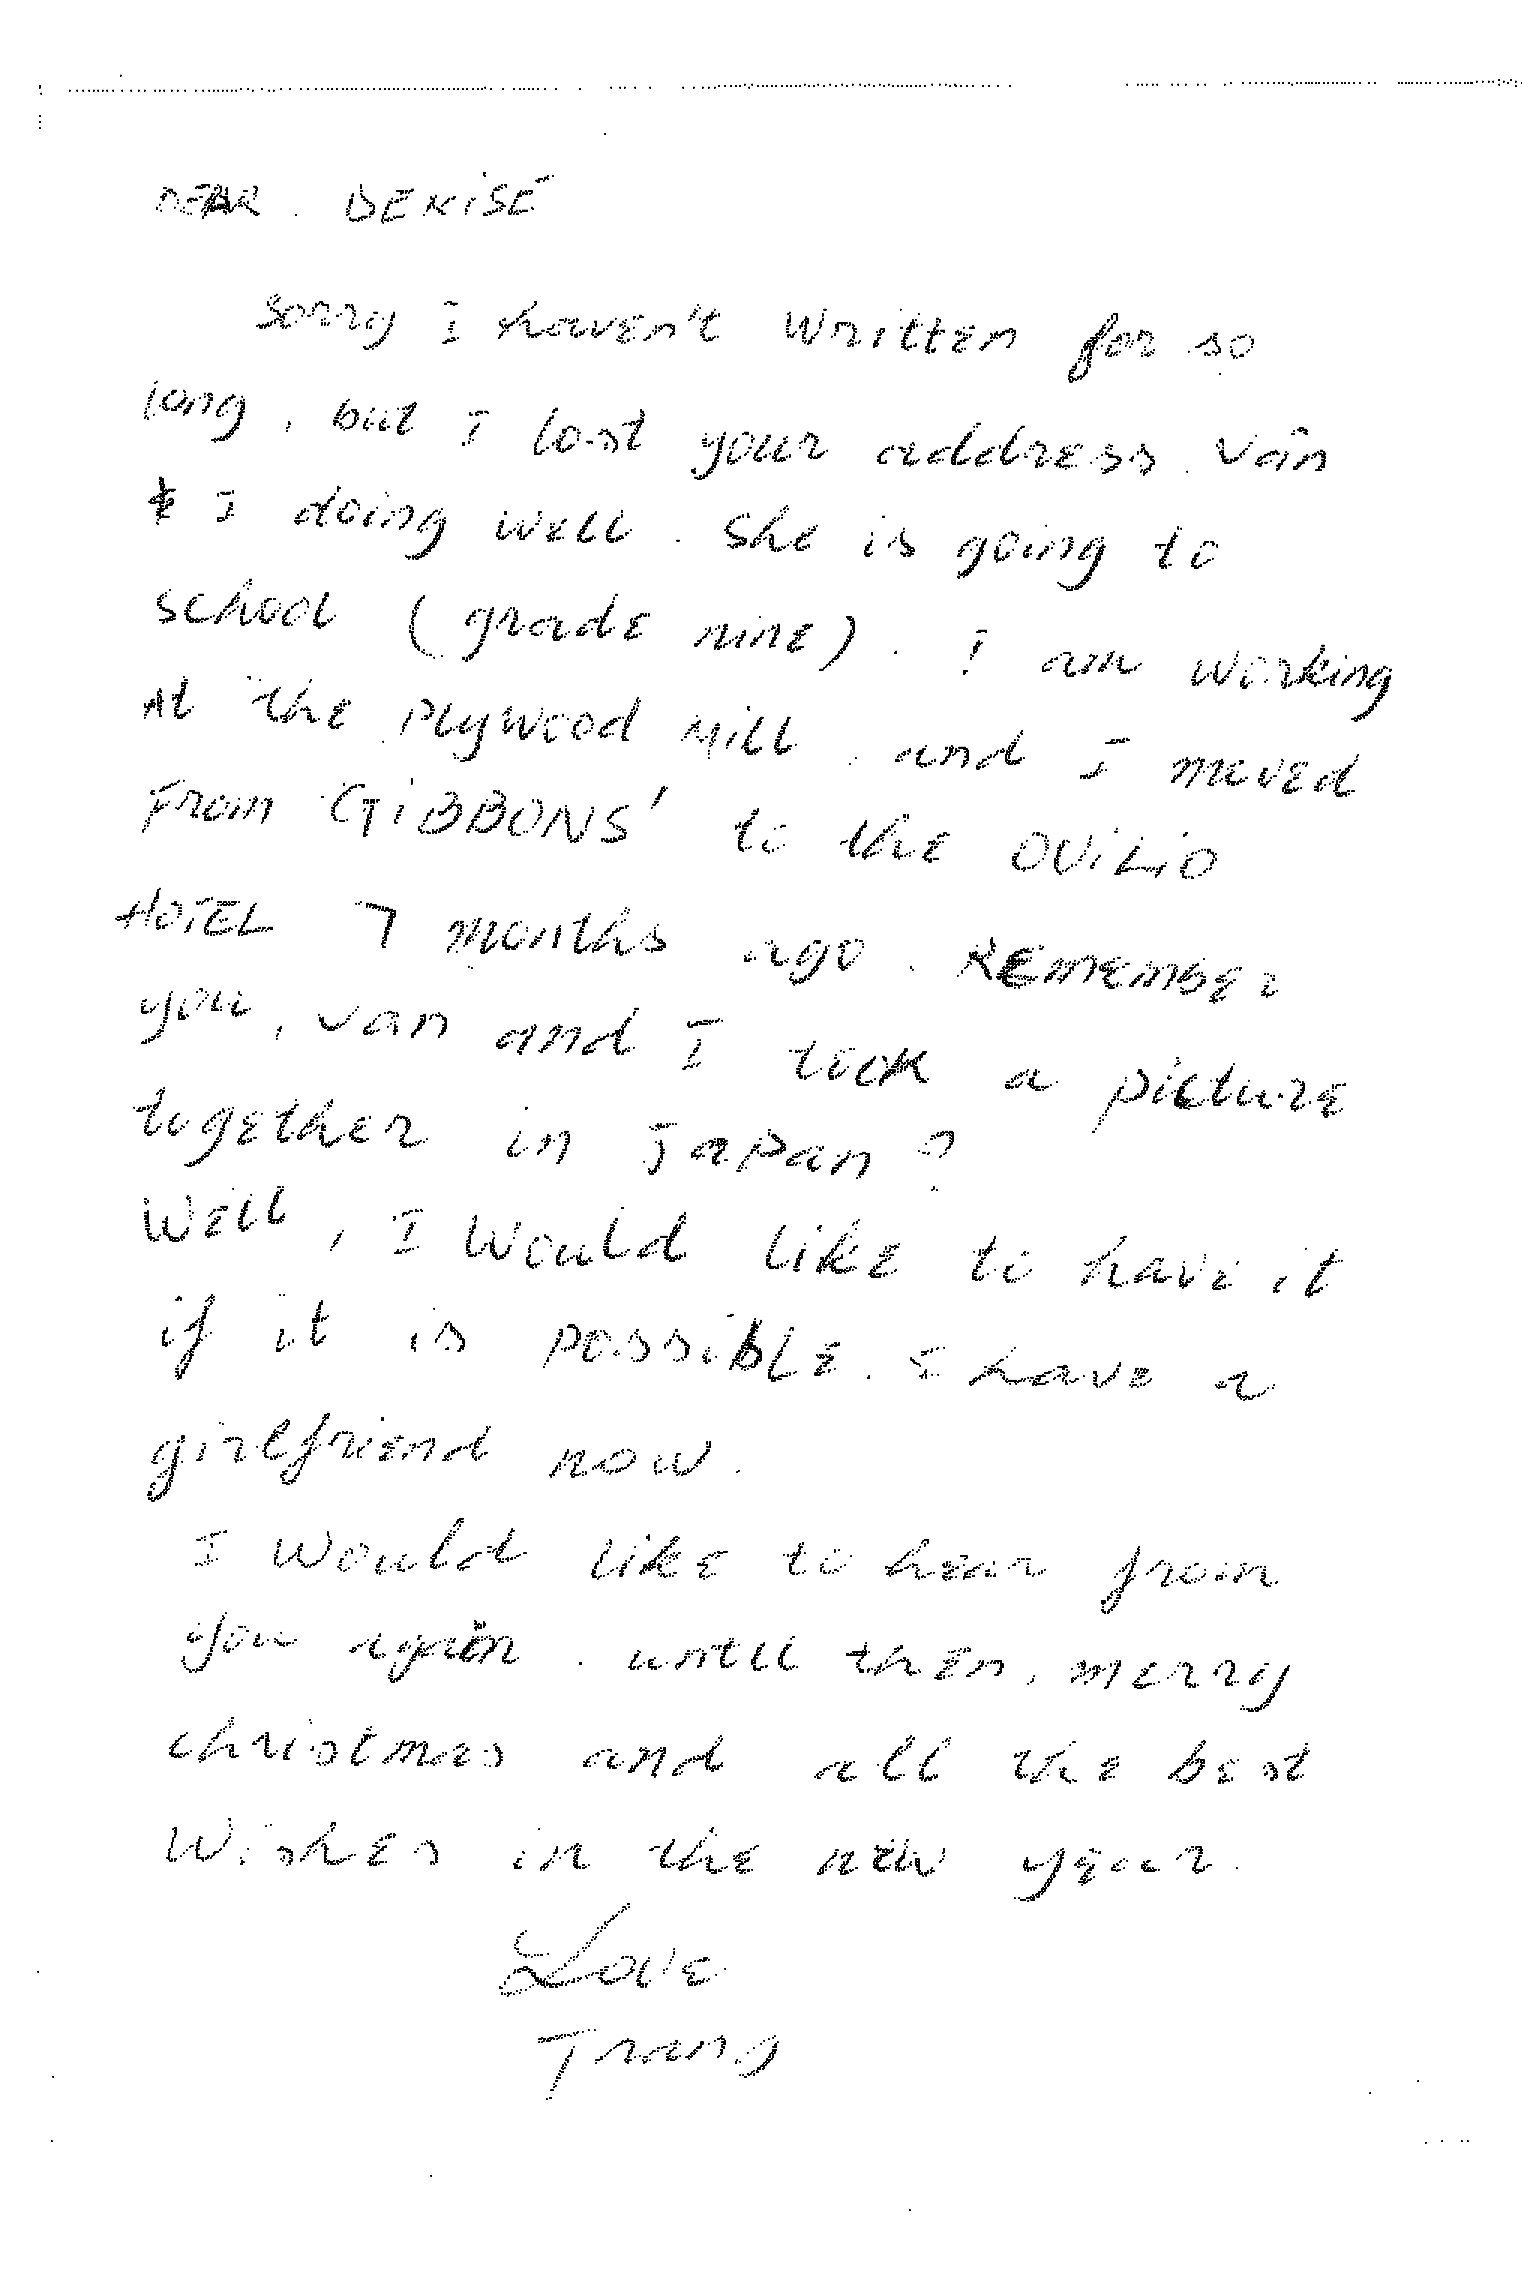 DEAR. DENISE
Sorry I haven't written for so
long, but I lost your address. Vân
& I doing well. She is going to
school (grade nine). I am working
At the plywood Mill. and I moved
From GiBBONS' to the OViLiO
HOTEL 7 months ago. REMEMBER
you, Van and I took a picture
together in Japan?
Well, I would like to have it
if it is possible. I have a
girlfriend now.
I would like to hear from
you again. until then, merry
christmas and all the best
Wishes in the new year.
Love
Trang